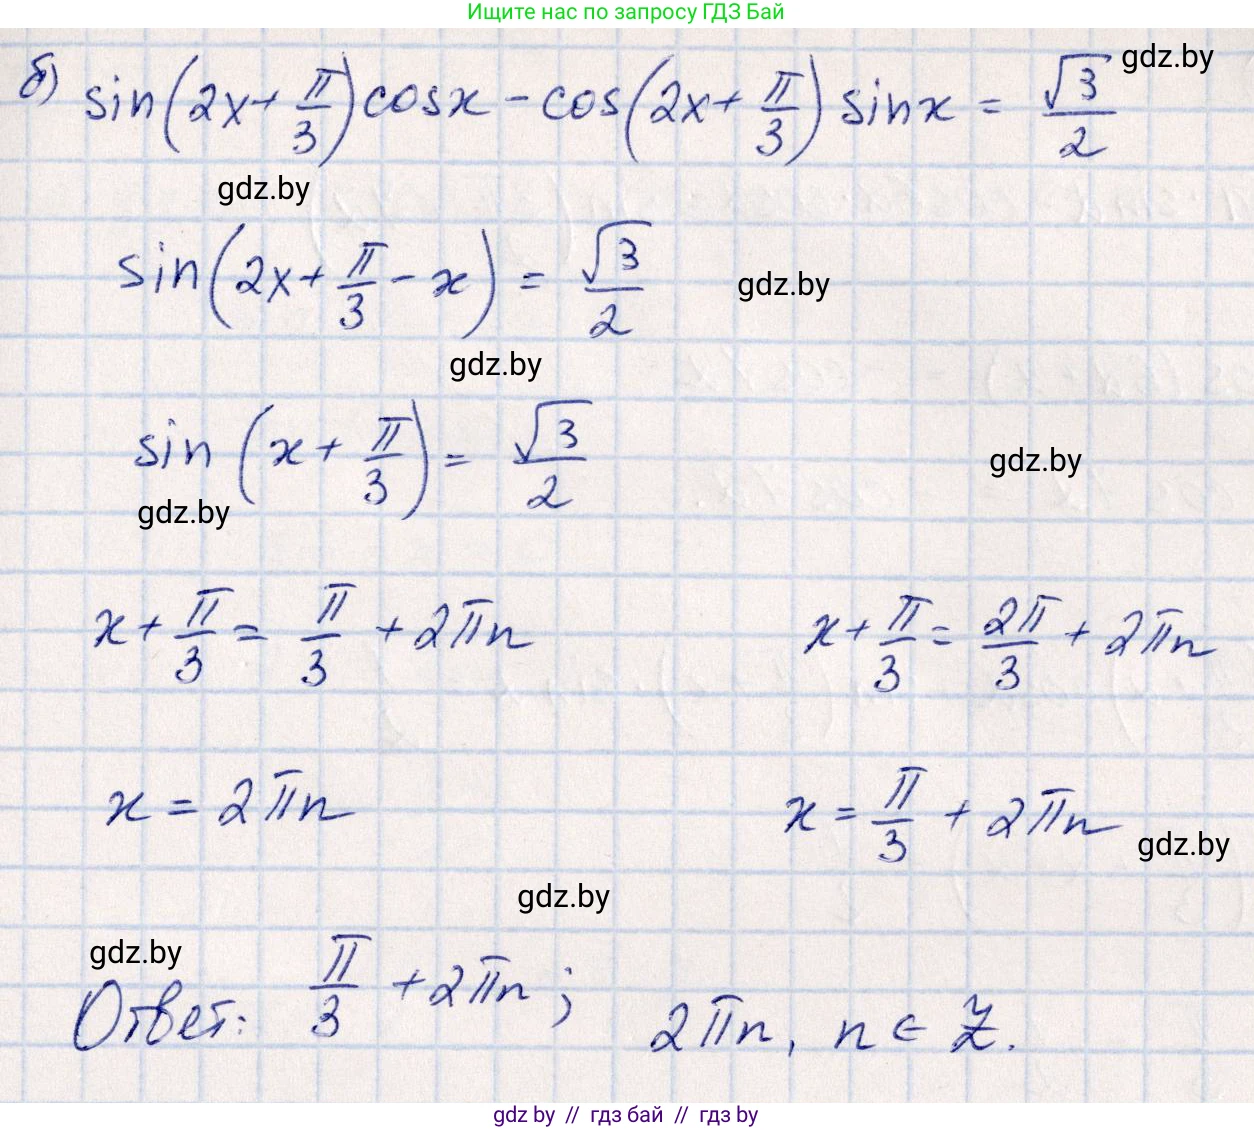 Ищите нас по запросу ГДЗ Бай
б) sin(2x + π/3)cosx - cos(2x + π/3) sinx = √3/2
gdz.by
gdz.by
sin(2x + π/3 - x) = √3/2
gdz.by
gdz.by
sin (x + π/3) = √3/2
gdz.by
gdz.by
x + π/3 = π/3 + 2πn    x + π/3 = 2π/3 + 2πn
x = 2πn    x = π/3 + 2πn
gdz.by
gdz.by
gdz.by
Ответ: π/3 + 2πn; 2πn, n ∈ Z.
gdz.by // гдз бай // гдз by